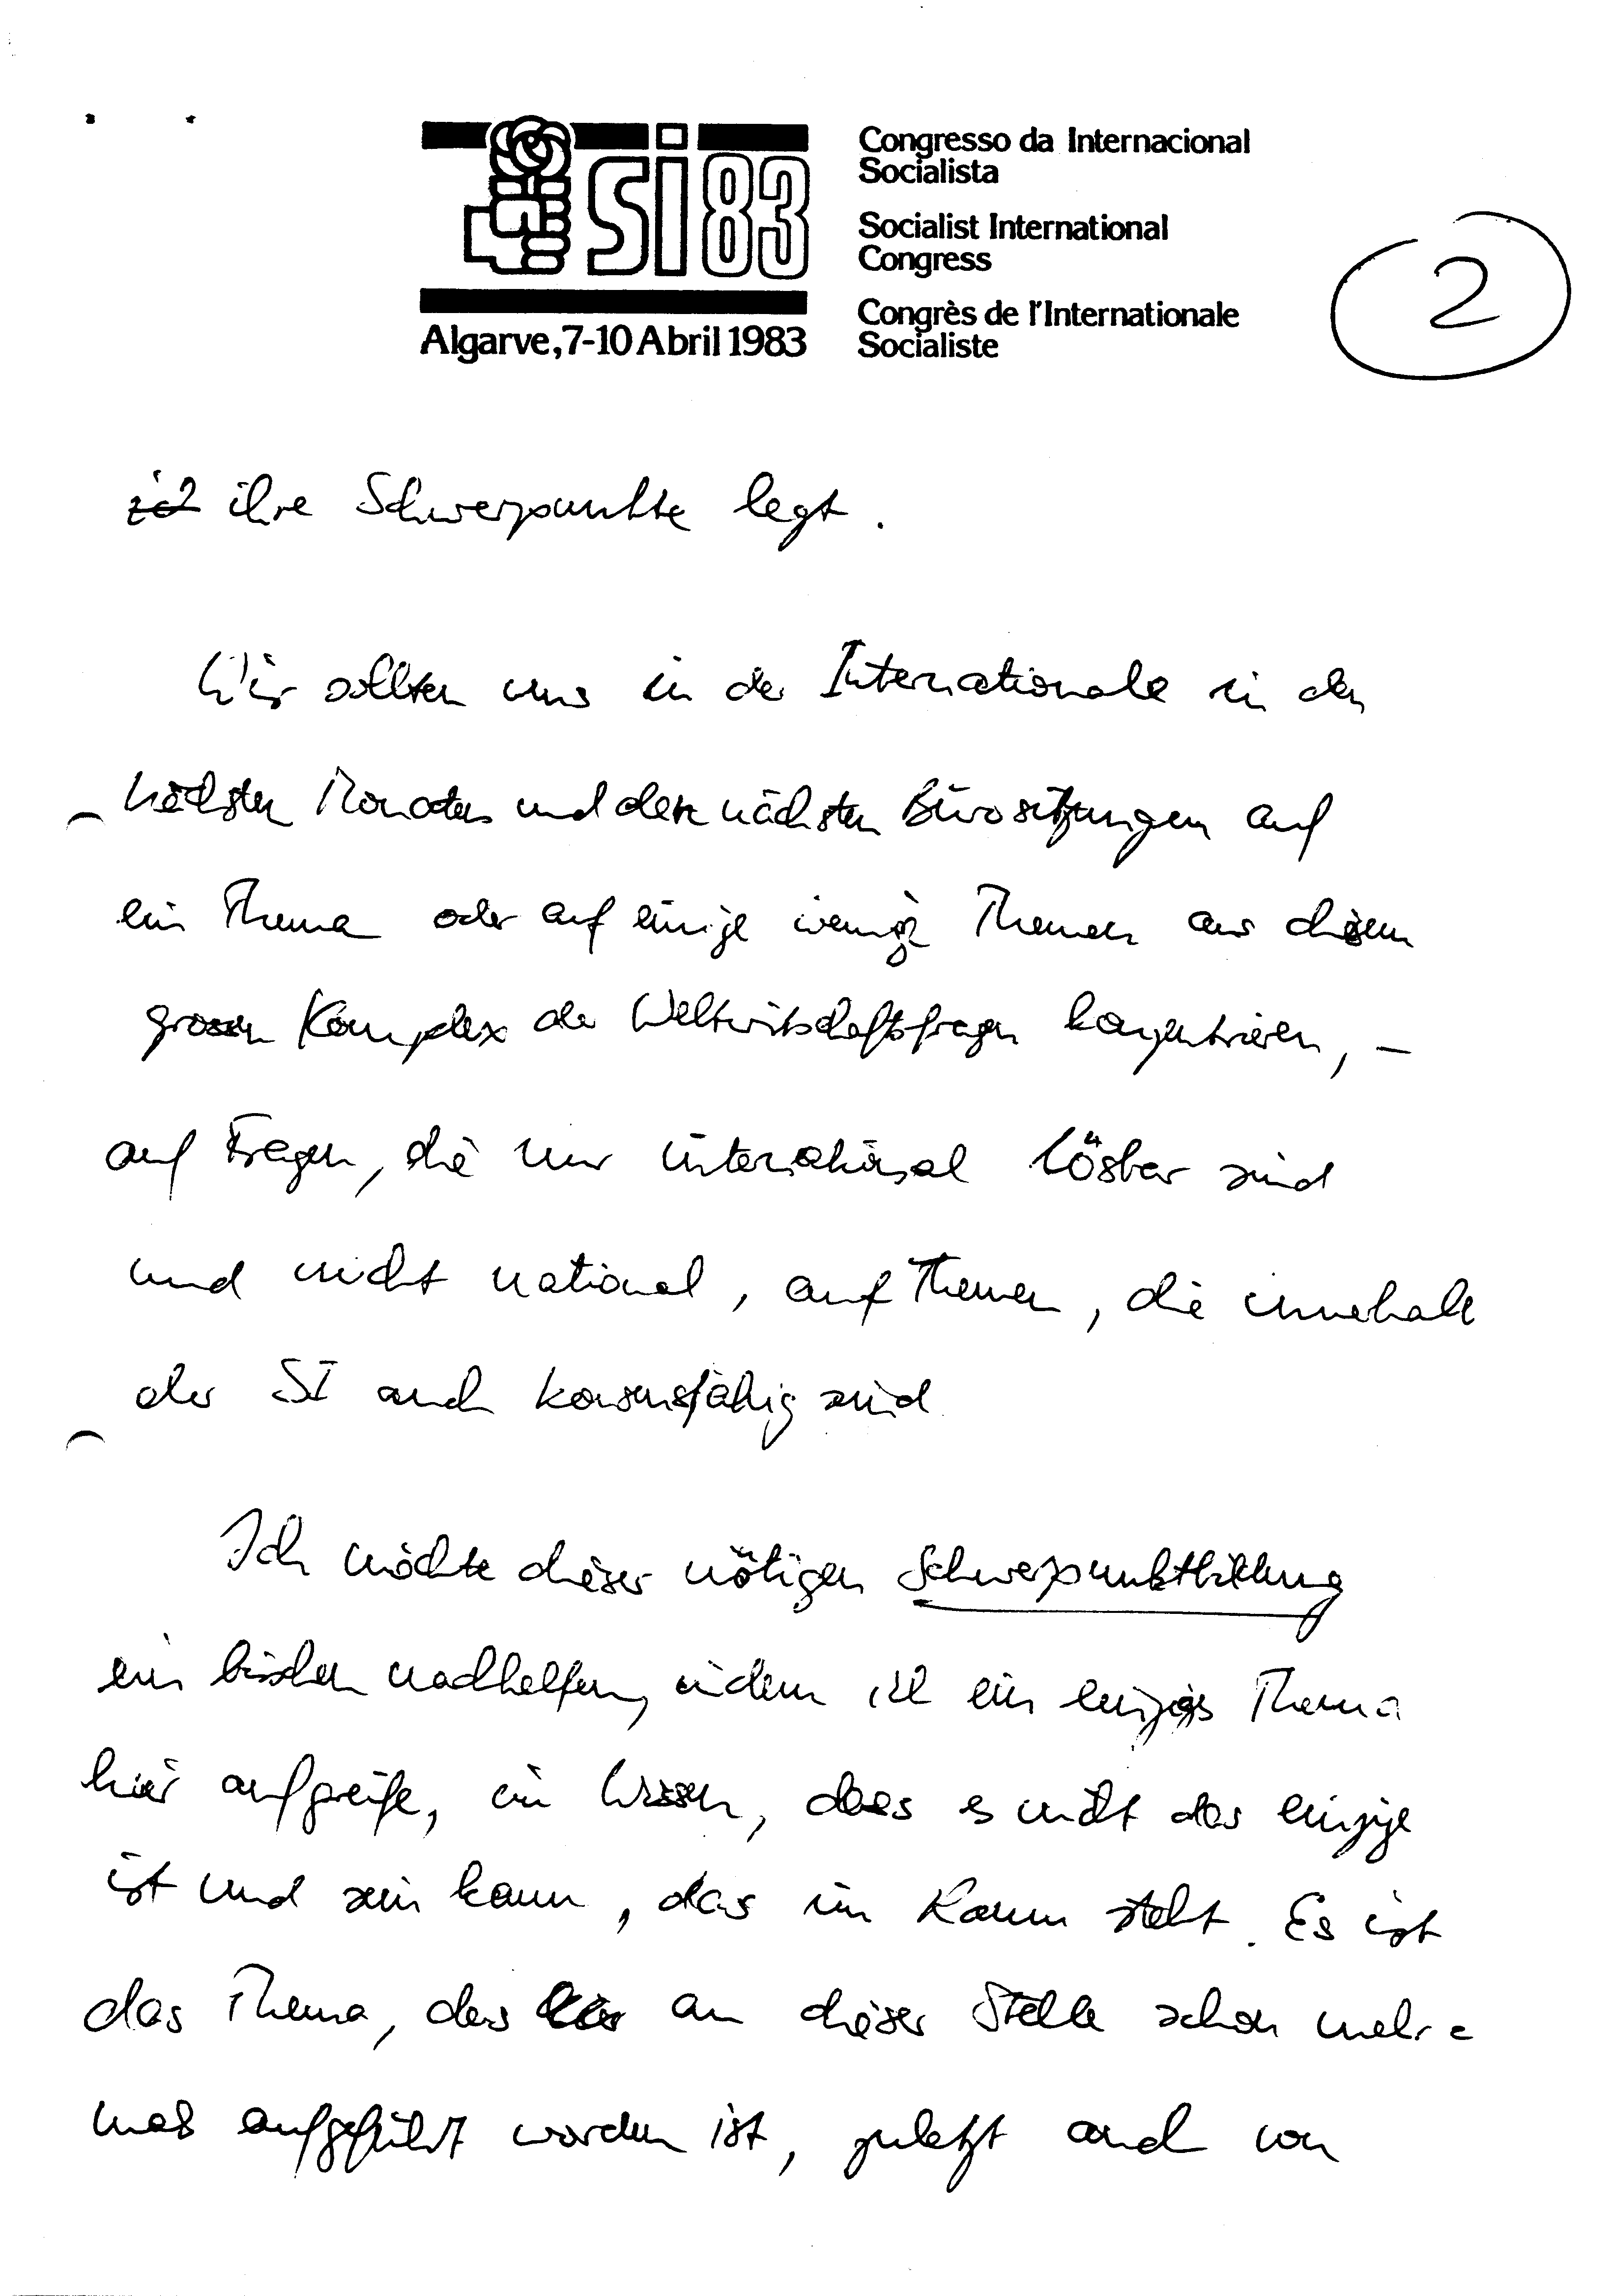 SI 83
Algarve, 7-10 Abril 1983
Congresso da Internacional
Socialista
Socialist International
Congress
Congrès de l'Internationale
Socialiste
2
ihre Schwerpunkte legt.
Wir sollten uns in der Internationale in den
nächsten Monaten und den nächsten Bürositzungen auf
ein Thema oder auf einige wenige Themen aus diesem
grossen Komplex der Weltwirtschaftsfragen konzentrieren, –
auf Fragen, die nur international lösbar sind
und nicht national, auf Themen, die innerhalb
der SI auch konsensfähig sind
Ich möchte dieser nötigen Schwerpunktbildung
ein bisschen nachhelfen, indem ich ein einziges Thema
hier aufgreife, im Wissen, dass es nicht das einzige
ist und sein kann, das im Raum steht. Es ist
das Thema, das an dieser Stelle schon mehr=
mals aufgeführt worden ist, zuletzt auch von